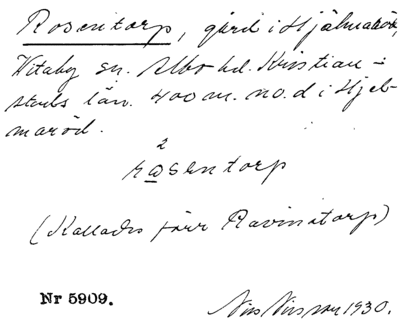 Rosentorp, gård i Hjälmaröd,
Witaby sn. Albo hd. Kristian-
stads län. 400 m. no. d i Hjel-
maröd.
2
rosentorp
(Kallades förr Ravinstorp)
Nr 5909.
Nils Nilsson 1930.